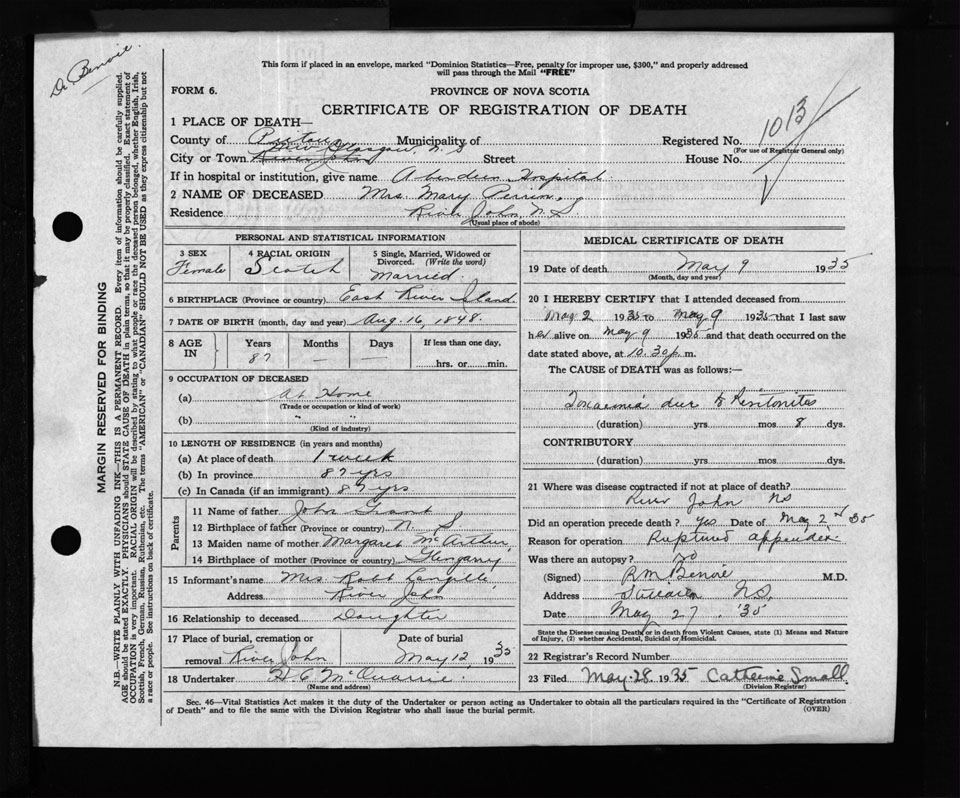 Dr Benoit
This form if placed in an envelope, marked "Dominion Statistics—Free, penalty for improper use, $300," and properly addressed
will pass through the Mail "FREE"
FORM 6.
PROVINCE OF NOVA SCOTIA
CERTIFICATE OF REGISTRATION OF DEATH
1013
1 PLACE OF DEATH—
County of Pictou Municipality of Registered No.
(For use of Registrar General only)
New Glasgow, N.S
City or Town River John Street House No.
If in hospital or institution, give name Aberdeen Hospital
2 NAME OF DECEASED Mrs. Mary Perrin,
Residence River John N.S.
(Usual place of abode)
PERSONAL AND STATISTICAL INFORMATION
3 SEX 4 RACIAL ORIGIN 5 Single, Married, Widowed or
Divorced. (Write the word)
Female Scotch Married.
6 BIRTHPLACE (Province or country). East River Island
7 DATE OF BIRTH (month, day and year) Aug. 16, 1848.
8 AGE IN Years Months Days If less than one day,
87 — — hrs. or min.
9 OCCUPATION OF DECEASED
(a) At Home
(Trade or occupation or kind of work)
(b) " "
(Kind of industry)
10 LENGTH OF RESIDENCE (in years and months)
(a) At place of death 1 week
(b) In province 87 yrs
(c) In Canada (if an immigrant) 87 yrs
Parents
11 Name of father John Grant
12 Birthplace of father (Province or country) N. S
13 Maiden name of mother Margaret McArthur,
14 Birthplace of mother (Province or country) Glengarry
15 Informant's name Mrs. Robt Langille,
Address River John
16 Relationship to deceased Daughter
17 Place of burial, cremation or Date of burial
removal River John May 12, 1935
18 Undertaker H C McQuarrie.
(Name and address)
MEDICAL CERTIFICATE OF DEATH
19 Date of death May 9 1935
(Month, day and year)
20 I HEREBY CERTIFY that I attended deceased from
May 2 1935 to May 9 1935 that I last saw
her alive on May 9 1935 and that death occurred on the
date stated above, at 10.30 p. m.
The CAUSE of DEATH was as follows:—
Toxaemia due to Peritonitis
(duration) yrs mos 8 dys.
CONTRIBUTORY
(duration) yrs mos dys.
21 Where was disease contracted if not at place of death?
River John NS
Did an operation precede death? Yes Date of May 2nd 35
Reason for operation Ruptured appendix
Was there an autopsy? no
(Signed) M.D.
Address Stellarton NS.
Date May 27. '35
State the Disease causing Death or in death from Violent Causes, state (1) Means and Nature
of Injury, (2) whether Accidental, Suicidal or Homicidal.
22 Registrar's Record Number
23 Filed May 28 1935 Catherine Small
(Division Registrar)
Sec. 46—Vital Statistics Act makes it the duty of the Undertaker or person acting as Undertaker to obtain all the particulars required in the "Certificate of Registration
of Death" and to file the same with the Division Registrar who shall issue the burial permit.
(OVER)
MARGIN RESERVED FOR BINDING
N.B.—WRITE PLAINLY WITH UNFADING INK—THIS IS A PERMANENT RECORD. Every item of information should be carefully supplied.
AGE should be stated EXACTLY. PHYSICIANS should STATE CAUSE OF DEATH in plain terms, so that it may be properly classified. Exact statement of
OCCUPATION is very important. RACIAL ORIGIN will be described by stating to what people or race the deceased person belonged, whether English, Irish,
Scottish, French, German, Russian, Ruthenian, etc. The terms "AMERICAN" or "CANADIAN" SHOULD NOT BE USED as they express citizenship but not
a race or people. See instructions on back of certificate.